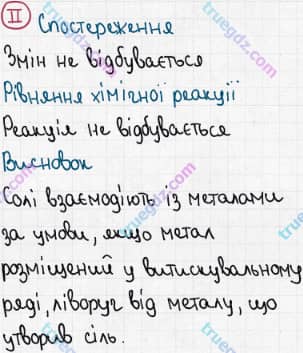 II Спостереження
Змін не відбувається
Рівняння хімічної реакції
Реакція не відбувається
Висновок
Солі взаємодіють із металами
за умови, якщо метал
розміщений у витискувальному
ряді, ліворуч від металу, що
утворив сіль.
truegdz.com
truegdz.com
truegdz.com
truegdz.com
truegdz.com